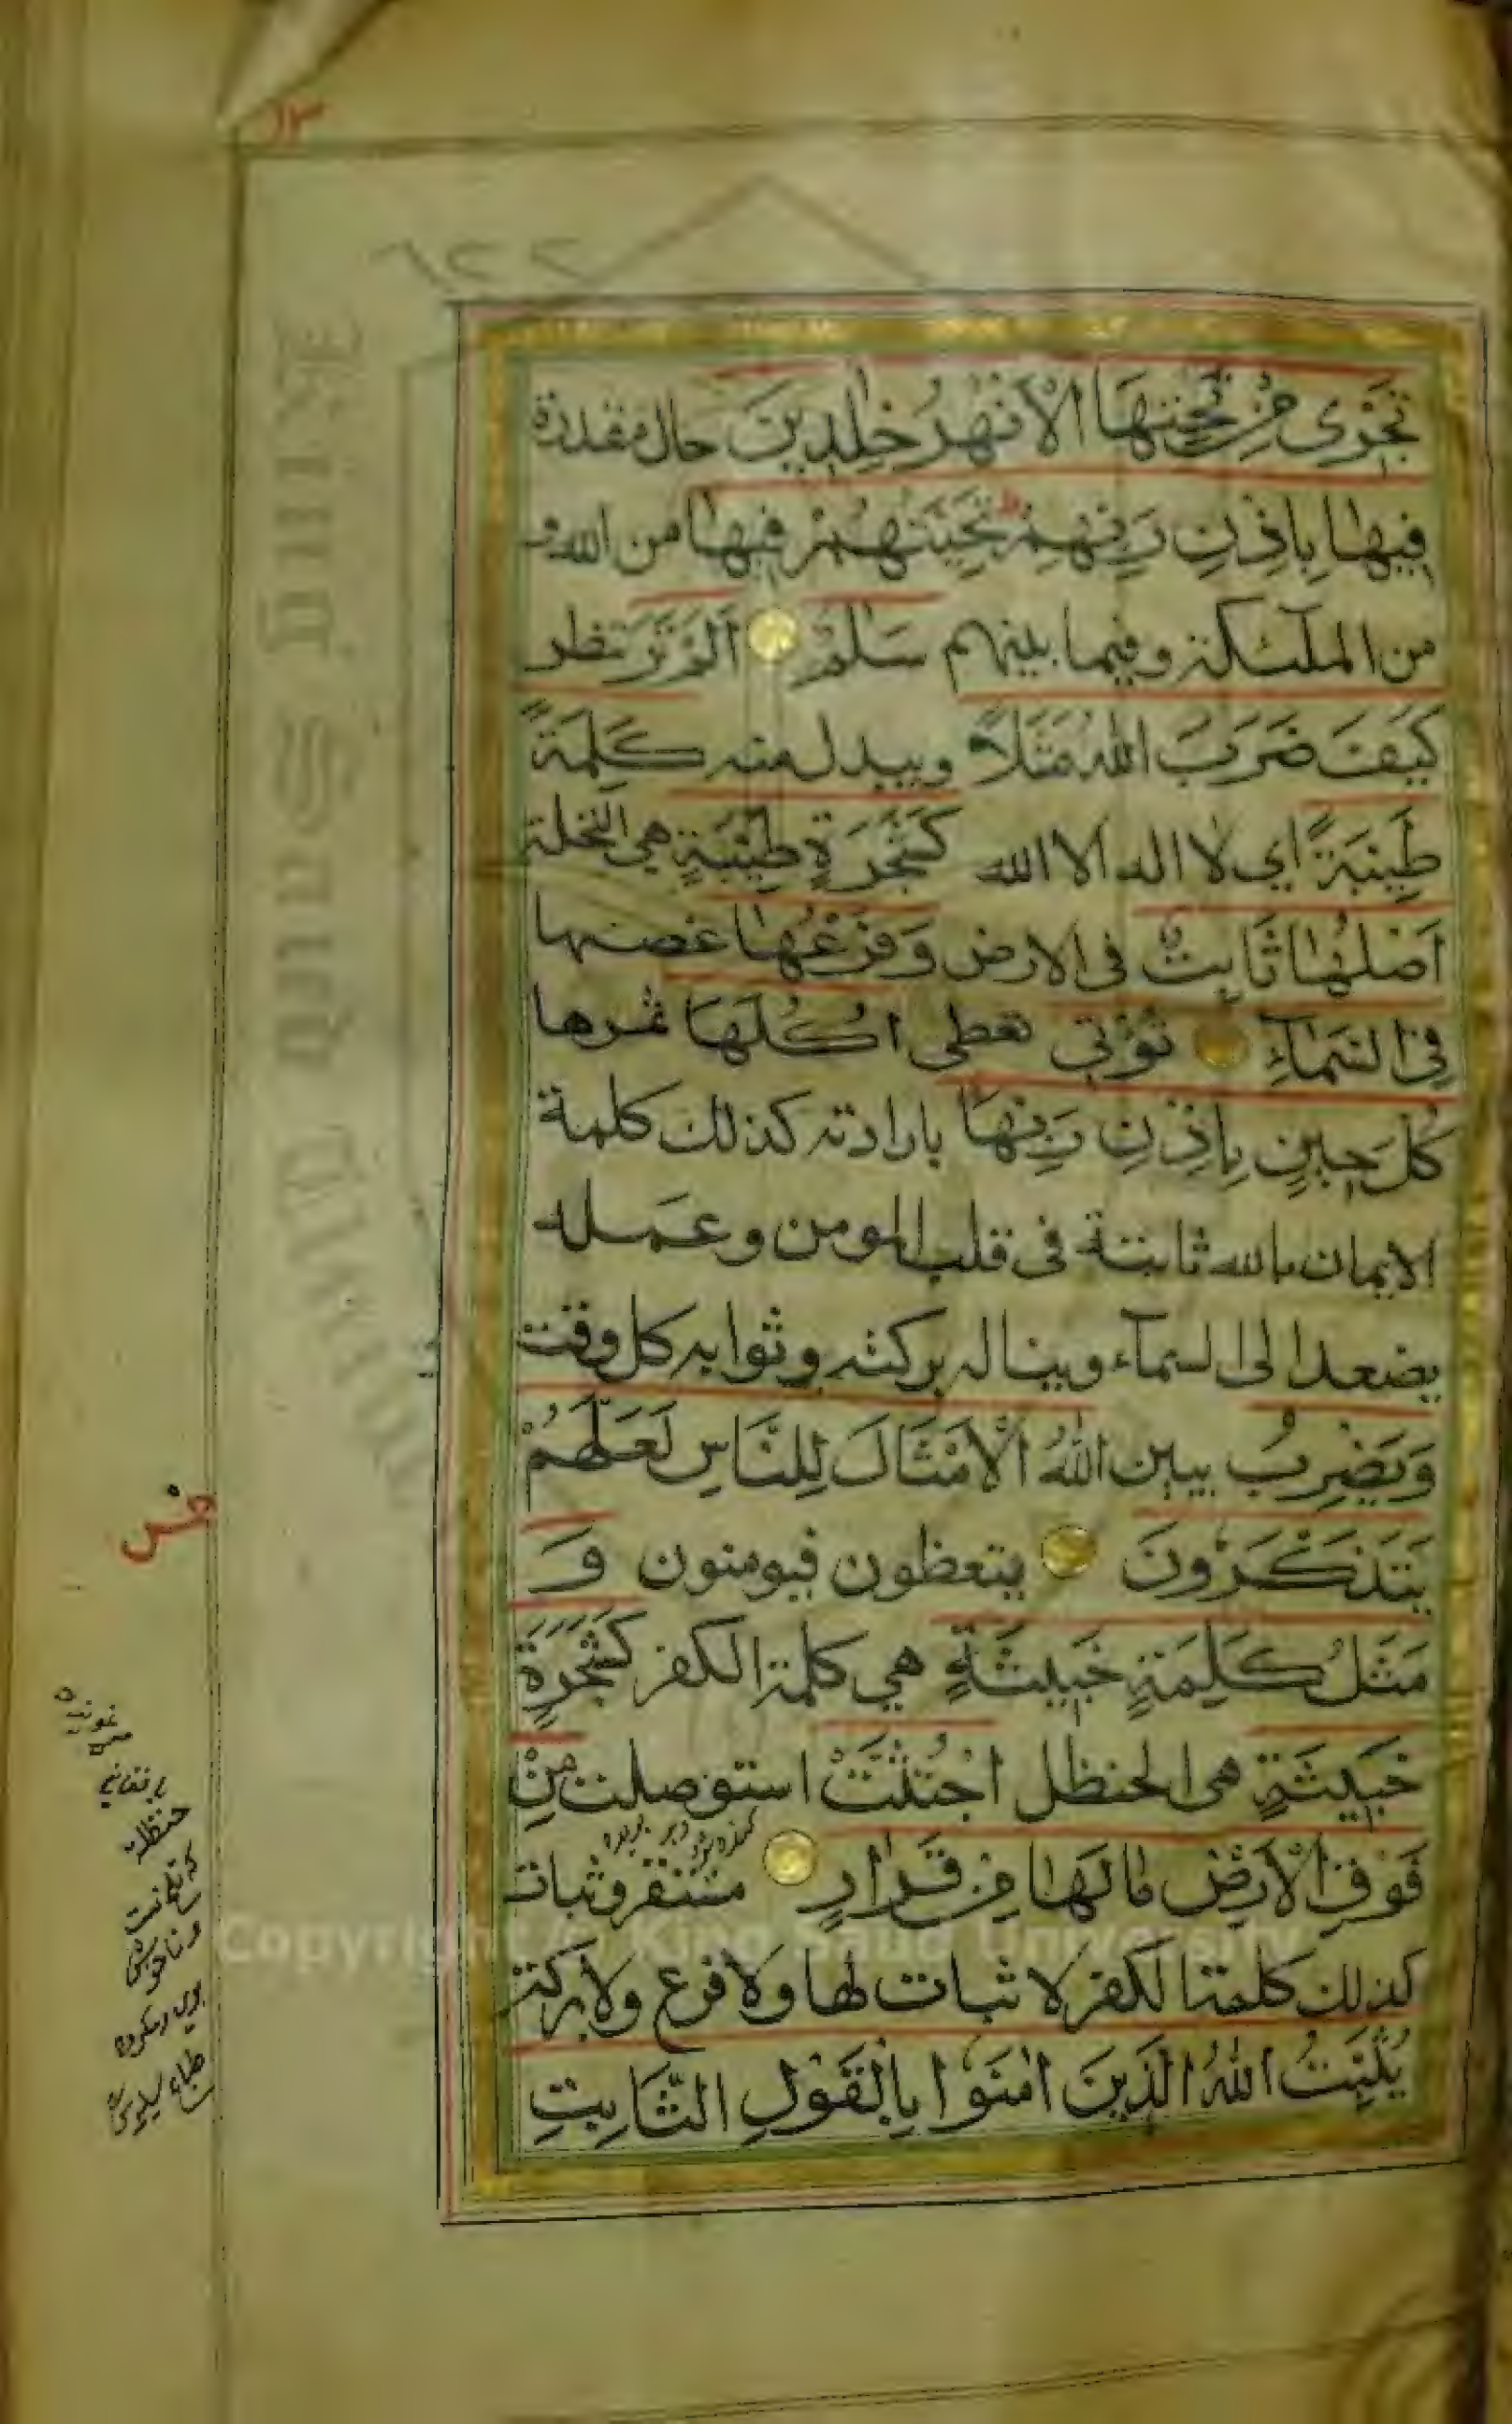 ١٣
٦٢٢
تَجْرِي مِنْ تَحْتِهَا الْاَنْهٰرُ خٰلِدِينَ حال مقدرة
فِيهَا بِاِذْنِ رَبِّهِمْ ط تَحِيَّتُهُمْ فِيهَا من الله و
من الملٓئكة وفيما بينهم سَلٰمٌ اَلَمْ تَرَ تنظر
كَيْفَ ضَرَبَ اللّٰهُ مَثَلًا ويبدل منه كَلِمَةً
طَيِّبَةً اي لا اله الا الله كَشَجَرَةٍ طَيِّبَةٍ هي النخلة
اَصْلُهَا ثَابِتٌ في الارض وَفَرْعُهَا غصنها
فِي السَّمَآءِ تُؤْتِي تعطى اُكُلَهَا ثمرها
كُلَّ حِينٍ بِاِذْنِ رَبِّهَا بارادته كذلك كلمة
الايمان بالله ثابتة في قلب المومن وعمله
يصعد الى السمآء ويناله بركته وثوابه كل وقت
وَيَضْرِبُ يبين اللّٰهُ الْاَمْثَالَ لِلنَّاسِ لَعَلَّهُمْ
يَتَذَكَّرُونَ يتعظون فيومنون وَ
مَثَلُ كَلِمَةٍ خَبِيثَةٍ هي كلمة الكفر كَشَجَرَةٍ
خَبِيثَةٍ هى الحنظل اجْتُثَّتْ استوصلت مِنْ
فَوْقِ الْاَرْضِ مَا لَهَا مِنْ قَرَارٍ مستقر وثبات
كذلك كلمة الكفر لا ثبات لها ولا فرع ولا بركة
يُثَبِّتُ اللّٰهُ الَّذِينَ اٰمَنُوا بِالْقَوْلِ الثَّابِتِ
حنظلة
Copyright © King Saud University